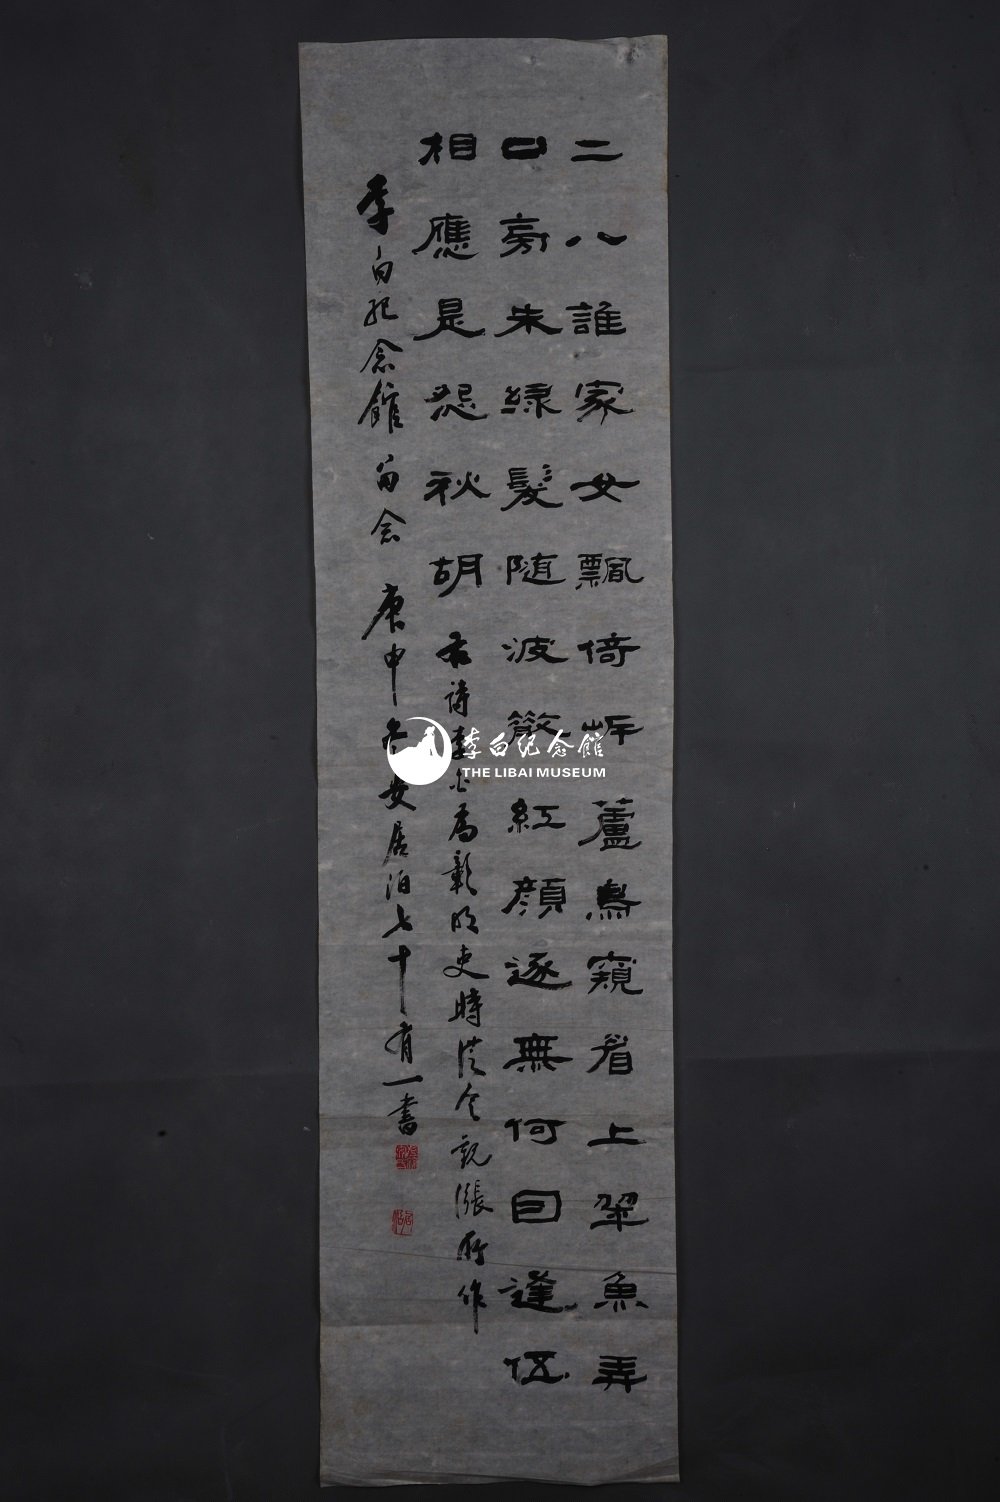 二八誰家女飄倚岸蘆鳥窺眉上翠魚弄
口旁朱綠髮隨波散紅顔逐無何因逢伍
相應是怨秋胡
右詩李白為彰明吏時從令觀漲所作
李白紀念館留念 庚申冬安居伯七十有一書
李白纪念馆
THE LIBAI MUSEUM